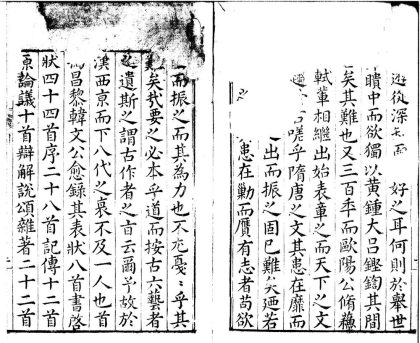 遊從深而好之耳何則於舉世
聵中而欲獨以黃鍾大呂鏗鍧其間
矣其難也又三百年而歐陽公脩蘇
軾輩相繼出始表章之而天下之文
嗟乎隋唐之文其患在靡而
出而振之固已難矣廼若
之患在勦而贋有志者苟欲
而振之而其為力也不尤戛乎其
矣哉要之必本乎道而按古六藝者
遺斯之謂古作者之旨云爾予故於
漢西京而下八代之衰不及一人也首
昌黎韓文公愈錄其表狀八首書啓
狀四十四首序二十八首記傳十二首
原論議十首辯解說頌雜著二十二首